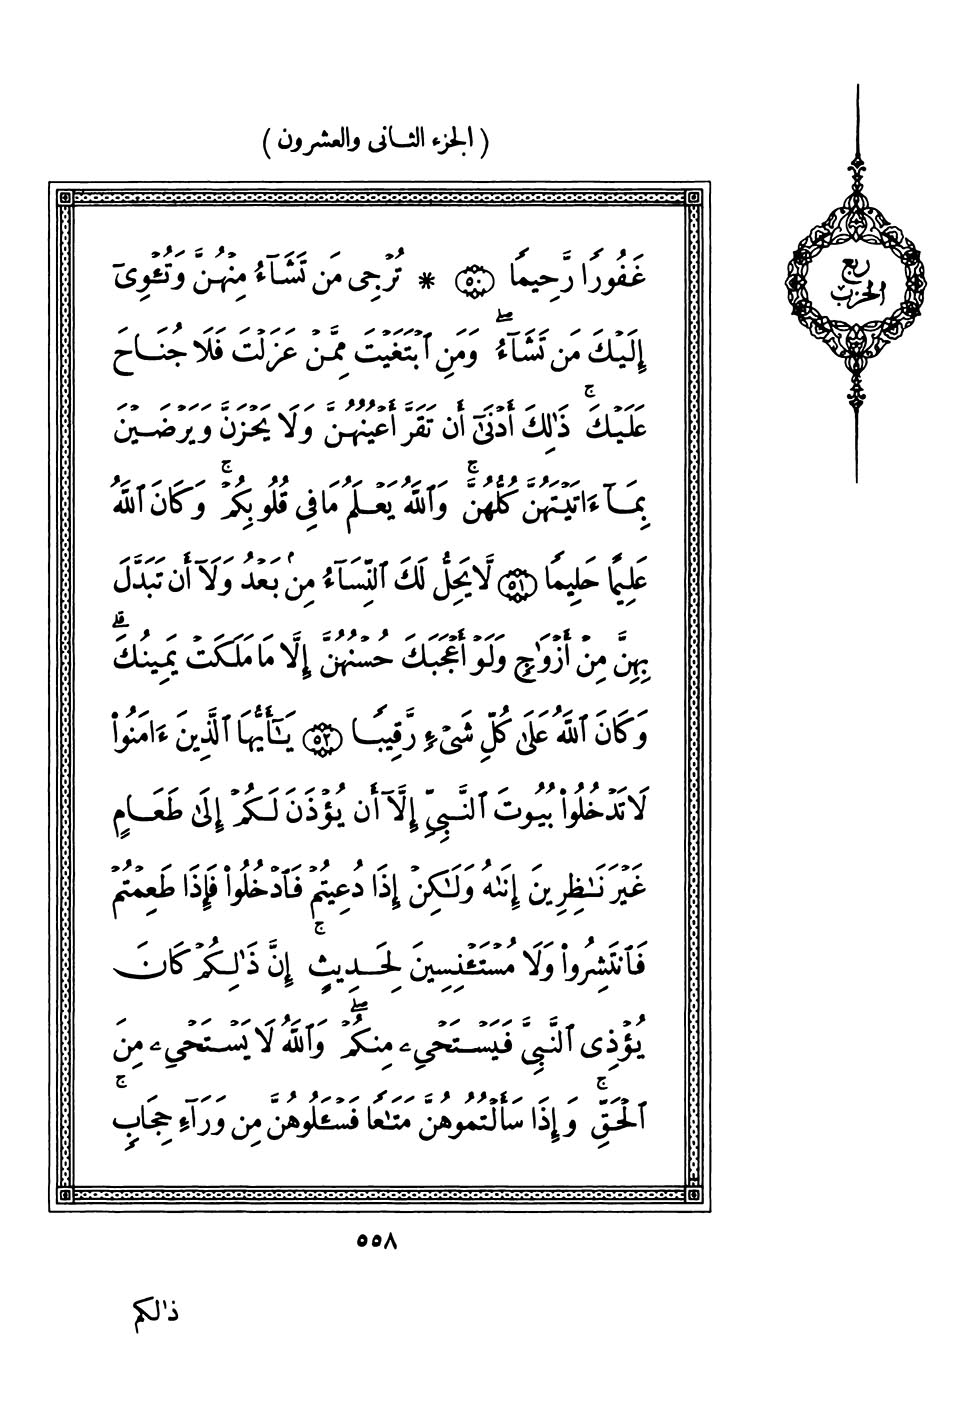 ( الجزء الثانى والعشرون )
ربع
الحزب
غَفُورًا رَّحِيمًا ۝٥٠ * تُرْجِى مَن تَشَآءُ مِنْهُنَّ وَتُـْٔوِىٓ
إِلَيْكَ مَن تَشَآءُ ۖ وَمَنِ ٱبْتَغَيْتَ مِمَّنْ عَزَلْتَ فَلَا جُنَاحَ
عَلَيْكَ ۚ ذَٰلِكَ أَدْنَىٰٓ أَن تَقَرَّ أَعْيُنُهُنَّ وَلَا يَحْزَنَّ وَيَرْضَيْنَ
بِمَآ ءَاتَيْتَهُنَّ كُلُّهُنَّ ۚ وَٱللَّهُ يَعْلَمُ مَا فِى قُلُوبِكُمْ ۚ وَكَانَ ٱللَّهُ
عَلِيمًا حَلِيمًا ۝٥١ لَّا يَحِلُّ لَكَ ٱلنِّسَآءُ مِنۢ بَعْدُ وَلَآ أَن تَبَدَّلَ
بِهِنَّ مِنْ أَزْوَٰجٍ وَلَوْ أَعْجَبَكَ حُسْنُهُنَّ إِلَّا مَا مَلَكَتْ يَمِينُكَ ۗ
وَكَانَ ٱللَّهُ عَلَىٰ كُلِّ شَىْءٍ رَّقِيبًا ۝٥٢ يَـٰٓأَيُّهَا ٱلَّذِينَ ءَامَنُوا۟
لَا تَدْخُلُوا۟ بُيُوتَ ٱلنَّبِىِّ إِلَّآ أَن يُؤْذَنَ لَكُمْ إِلَىٰ طَعَامٍ
غَيْرَ نَـٰظِرِينَ إِنَىٰهُ وَلَـٰكِنْ إِذَا دُعِيتُمْ فَٱدْخُلُوا۟ فَإِذَا طَعِمْتُمْ
فَٱنتَشِرُوا۟ وَلَا مُسْتَـْٔنِسِينَ لِحَدِيثٍ ۚ إِنَّ ذَٰلِكُمْ كَانَ
يُؤْذِى ٱلنَّبِىَّ فَيَسْتَحْىِۦ مِنكُمْ ۖ وَٱللَّهُ لَا يَسْتَحْىِۦ مِنَ
ٱلْحَقِّ ۚ وَإِذَا سَأَلْتُمُوهُنَّ مَتَـٰعًا فَسْـَٔلُوهُنَّ مِن وَرَآءِ حِجَابٍ ۚ
٥٥٨
ذٰلكم